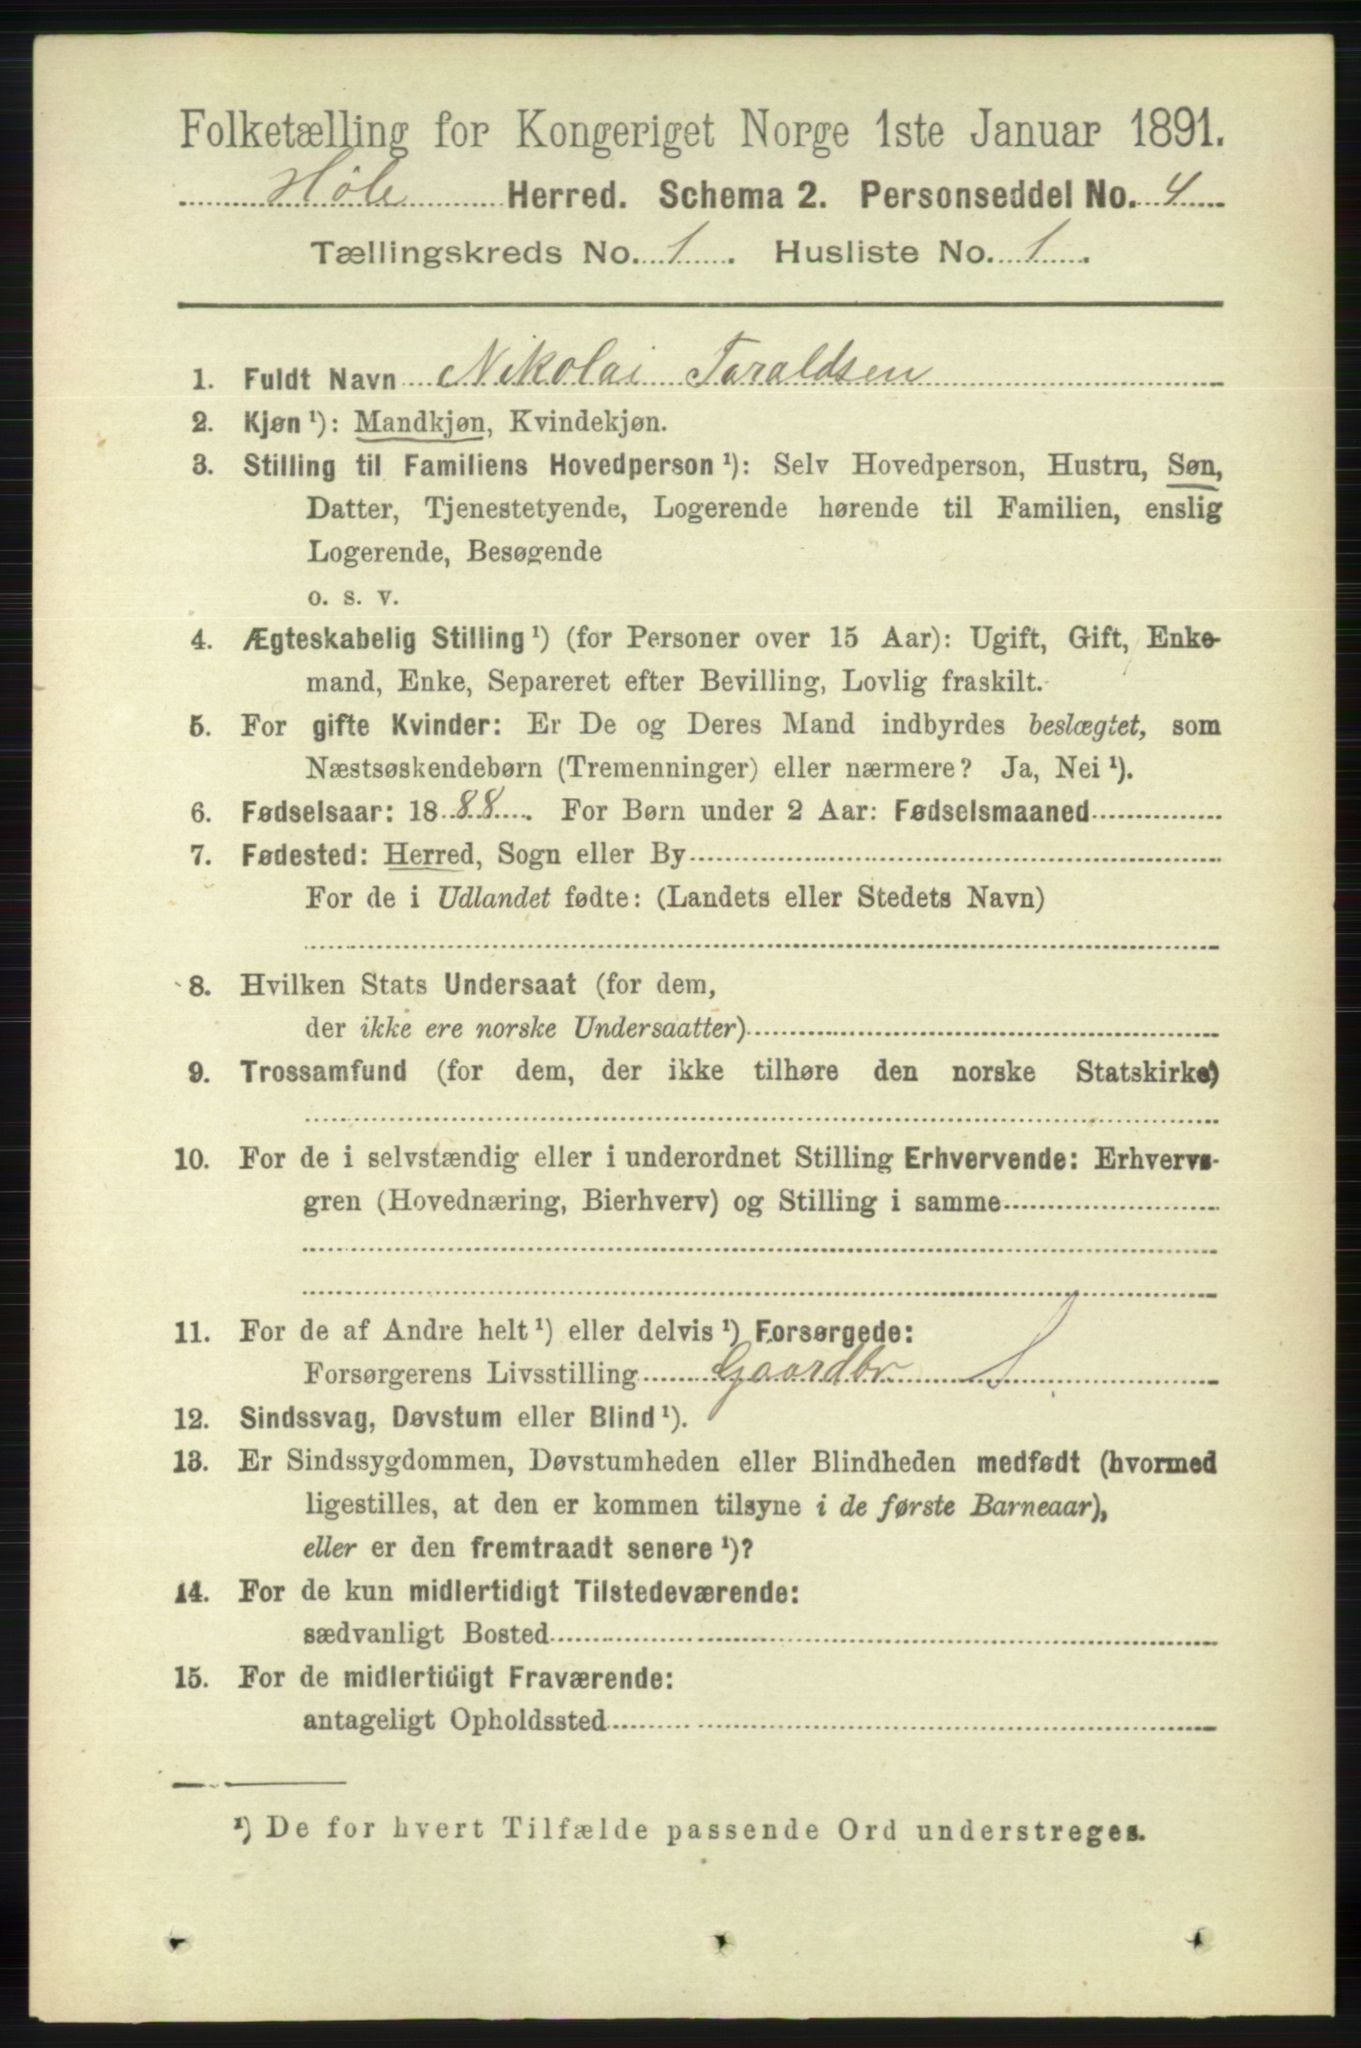 Folketælling for Kongeriget Norge 1ste Januar 1891.
Høle Herred. Schema 2. Personseddel No. 4
Tællingskreds No. 1. Husliste No. 1.
1. Fuldt Navn Nikolai Taraldsen
2. Kjøn ¹): Mandkjøn, Kvindekjøn.
3. Stilling til Familiens Hovedperson ¹): Selv Hovedperson, Hustru, Søn,
Datter, Tjenestetyende, Logerende hørende til Familien, enslig
Logerende, Besøgende
o. s. v.
4. Ægteskabelig Stilling ¹) (for Personer over 15 Aar): Ugift, Gift, Enke-
mand, Enke, Separeret efter Bevilling, Lovlig fraskilt.
5. For gifte Kvinder: Er De og Deres Mand indbyrdes beslægtet, som
Næstsøskendebørn (Tremenninger) eller nærmere? Ja, Nei ¹).
6. Fødselsaar: 1888. For Børn under 2 Aar: Fødselsmaaned
7. Fødested: Herred, Sogn eller By
For de i Udlandet fødte: (Landets eller Stedets Navn)
8. Hvilken Stats Undersaat (for dem,
der ikke ere norske Undersaatter)
9. Trossamfund (for dem, der ikke tilhøre den norske Statskirke)
10. For de i selvstændig eller i underordnet Stilling Erhvervende: Erhvervs-
gren (Hovednæring, Bierhverv) og Stilling i samme
11. For de af Andre helt ¹) eller delvis ¹) Forsørgede:
Forsørgerens Livsstilling Gaardbr S
12. Sindssvag, Døvstum eller Blind ¹).
13. Er Sindssygdommen, Døvstumheden eller Blindheden medfødt (hvormed
ligestilles, at den er kommen tilsyne i de første Barneaar),
eller er den fremtraadt senere ¹)?
14. For de kun midlertidigt Tilstedeværende:
sædvanligt Bosted
15. For de midlertidigt Fraværende:
antageligt Opholdssted
¹) De for hvert Tilfælde passende Ord understreges.